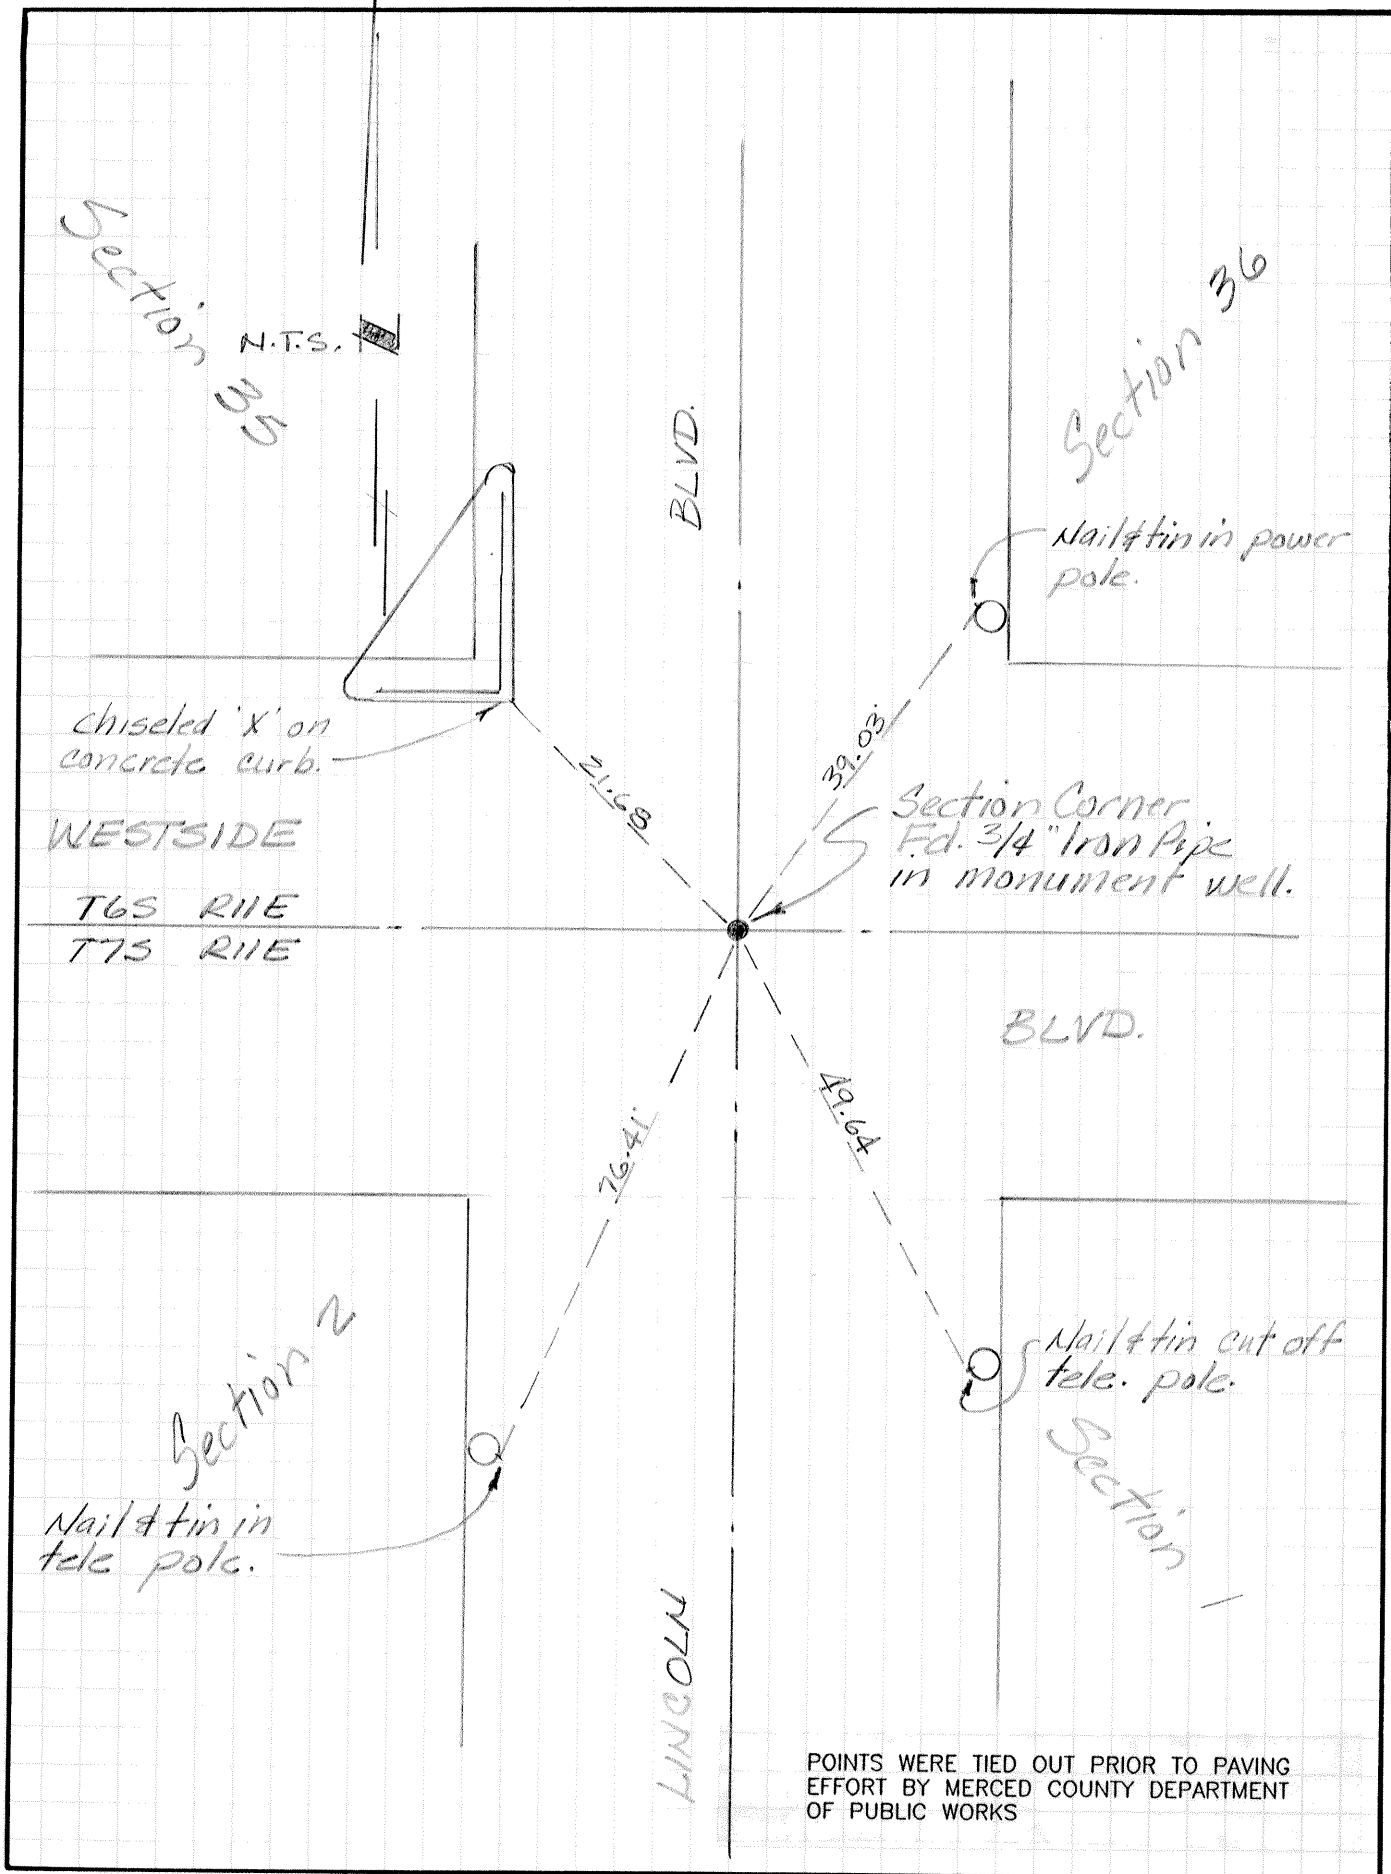 Section 35
N.T.S.
BLVD.
Section 36
Nail & tin in power
pole.
chiseled 'X' on
concrete curb.
21.68
39.03'
Section Corner
Fd. 3/4" Iron Pipe
in monument well.
WESTSIDE
T6S R11E
T7S R11E
BLVD.
76.41'
49.64
Section 2
Nail & tin cut off
tele. pole.
Section 1
Nail & tin in
tele pole.
LINCOLN
POINTS WERE TIED OUT PRIOR TO PAVING
EFFORT BY MERCED COUNTY DEPARTMENT
OF PUBLIC WORKS